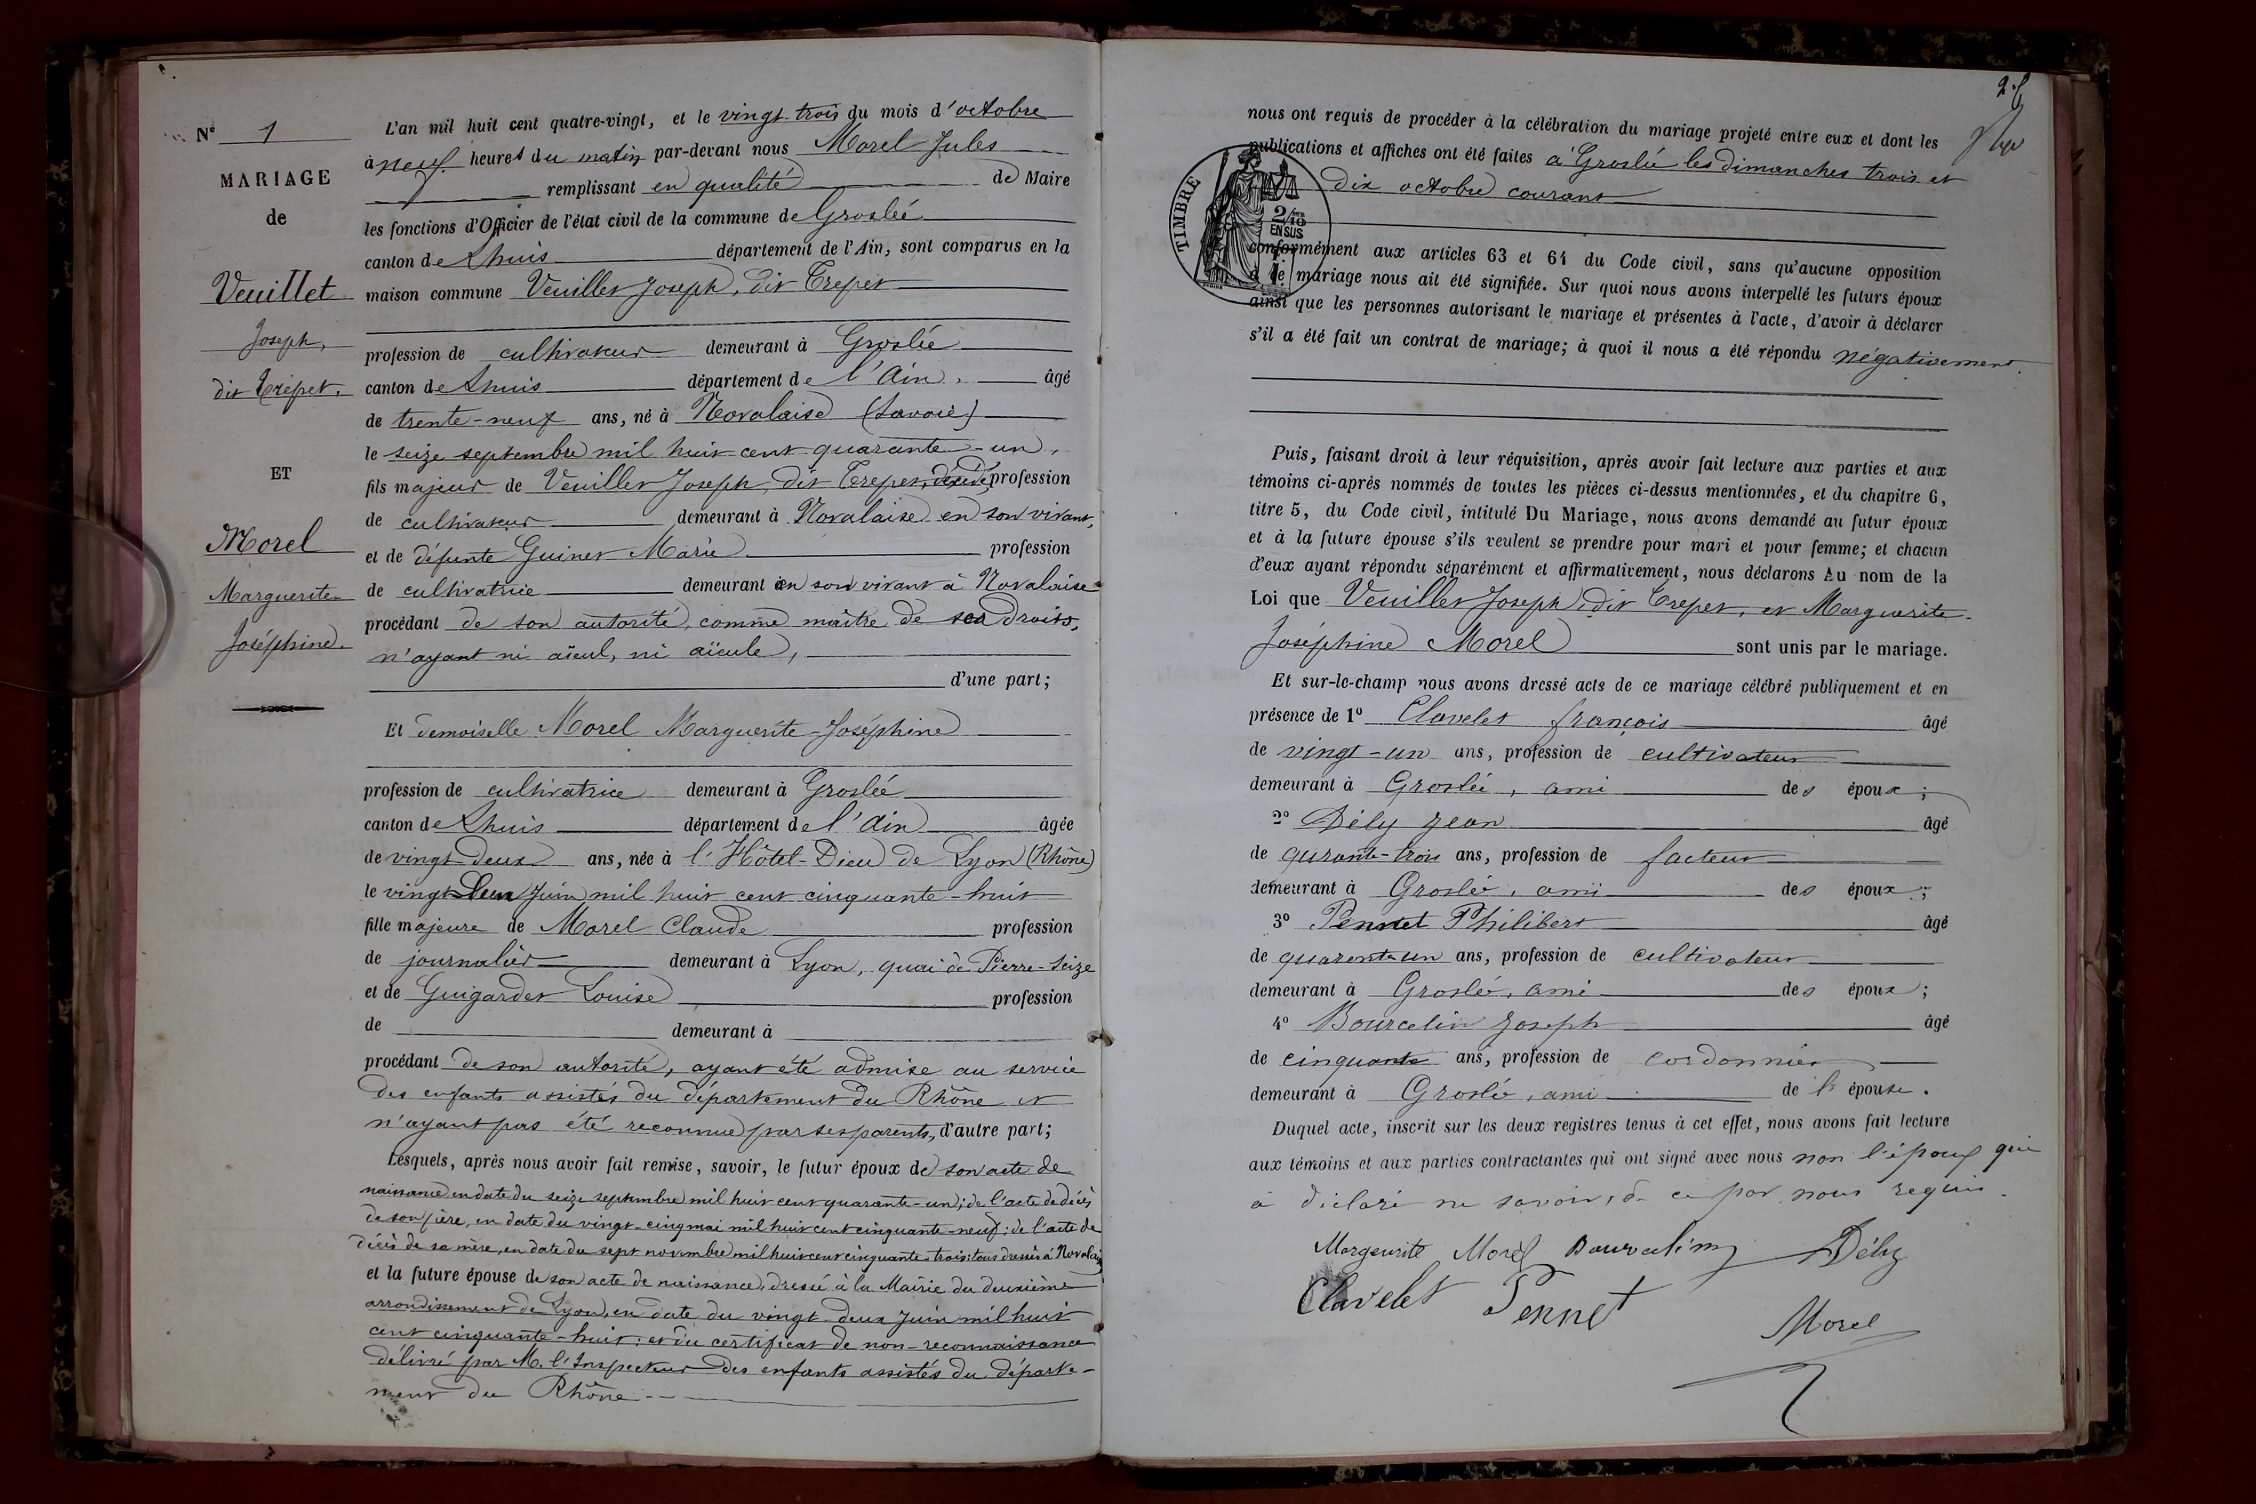 N° 1
MARIAGE
de
Veuillet
Joseph,
dit Trépet.
ET
Morel
Marguerite
Joséphine.
L'an mil huit cent quatre-vingt, et le vingt-trois du mois d'octobre
à neuf heures du matin par-devant nous Morel Jules
remplissant en qualité de Maire
les fonctions d'Officier de l'état civil de la commune de Groslée
canton de Lhuis département de l'Ain, sont comparus en la
maison commune Veuillet Joseph, dit Trepet
profession de cultivateur demeurant à Groslée
canton de Lhuis département de l'Ain, âgé
de trente-neuf ans, né à Novalaise (Savoie)
le seize septembre mil huit cent quarante-un,
fils majeur de Veuillet Joseph, dit Trepet, décédé, profession
de cultivateur demeurant à Novalaise en son vivant,
et de défunte Guinet Marie profession
de cultivatrice demeurant en son vivant à Novalaise
procédant de son autorité, comme maître de ses droits,
n'ayant ni aïeul, ni aïeule,
d'une part;
Et demoiselle Morel Marguerite-Joséphine
profession de cultivatrice demeurant à Groslée
canton de Lhuis département de l'Ain âgée
de vingt-deux ans, née à l'Hôtel-Dieu de Lyon (Rhône)
le vingt-deux Juin mil huit cent cinquante-huit
fille majeure de Morel Claude profession
de journalier demeurant à Lyon, quai de Pierre-Seize
et de Guigardet Louise profession
de demeurant à
procédant de son autorité, ayant été admise au service
des enfants assistés du département du Rhône et
n'ayant pas été reconnue par ses parents, d'autre part;
Lesquels, après nous avoir fait remise, savoir, le futur époux de son acte de
naissance en date du seize septembre mil huit cent quarante-un; de l'acte de décès
de son père, en date du vingt-cinq mai mil huit cent cinquante-neuf; de l'acte de
décès de sa mère, en date du sept novembre mil huit cent cinquante-trois: tous dressés à Novalaise
et la future épouse de son acte de naissance, dressé à la Mairie du deuxième
arrondissement de Lyon, en date du vingt-deux Juin mil huit
cent cinquante-huit; et du certificat de non-reconnaissance
délivré par M. l'Inspecteur des enfants assistés du départe-
ment du Rhône
nous ont requis de procéder à la célébration du mariage projeté entre eux et dont les
publications et affiches ont été faites à Groslée les dimanches trois et
dix octobre courant
TIMBRE
2/10
EN SUS
conformément aux articles 63 et 64 du Code civil, sans qu'aucune opposition
à ce mariage nous ait été signifiée. Sur quoi nous avons interpellé les futurs époux
ainsi que les personnes autorisant le mariage et présentes à l'acte, d'avoir à déclarer
s'il a été fait un contrat de mariage; à quoi il nous a été répondu négativement.
Puis, faisant droit à leur réquisition, après avoir fait lecture aux parties et aux
témoins ci-après nommés de toutes les pièces ci-dessus mentionnées, et du chapitre 6,
titre 5, du Code civil, intitulé Du Mariage, nous avons demandé au futur époux
et à la future épouse s'ils veulent se prendre pour mari et pour femme; et chacun
d'eux ayant répondu séparément et affirmativement, nous déclarons Au nom de la
Loi que Veuillet Joseph, dit Trepet, et Marguerite-
Joséphine Morel sont unis par le mariage.
Et sur-le-champ nous avons dressé acte de ce mariage célébré publiquement et en
présence de 1° Clavelet françois âgé
de vingt-un ans, profession de cultivateur
demeurant à Groslée, ami des époux;
2° Dély Jean âgé
de qurante-trois ans, profession de facteur
demeurant à Groslée, ami des époux;
3° Pennet Philibert âgé
de quarente un ans, profession de cultivateur
demeurant à Groslée, ami des époux;
4° Bourcelin Joseph âgé
de cinquante ans, profession de cordonnier
demeurant à Groslée, ami de l' épouse.
Duquel acte, inscrit sur les deux registres tenus à cet effet, nous avons fait lecture
aux témoins et aux parties contractantes qui ont signé avec nous non l'époux qui
a déclaré ne savoir, de ce par nous requis.
Margeurite Morel Bourcelin Dély
Clavelet Pennet
Morel